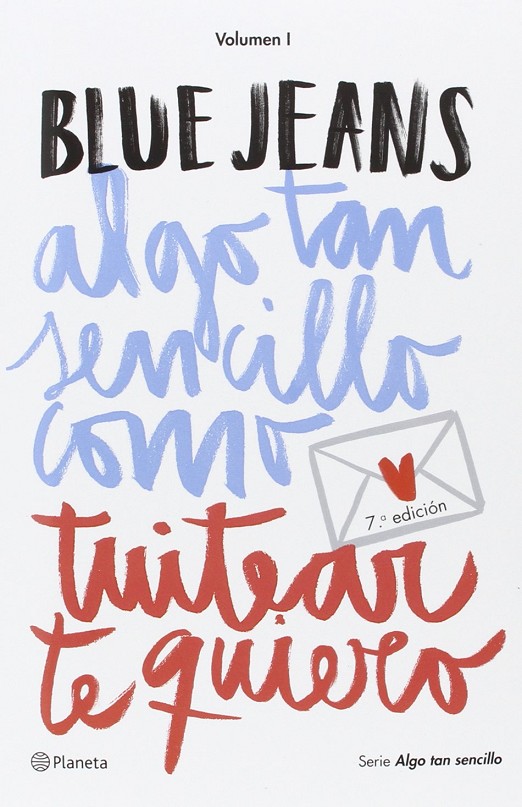 Volumen I
BLUE JEANS
algo tan
sencillo
como
7.ª edición
tuitear
te quiero
Planeta
Serie Algo tan sencillo